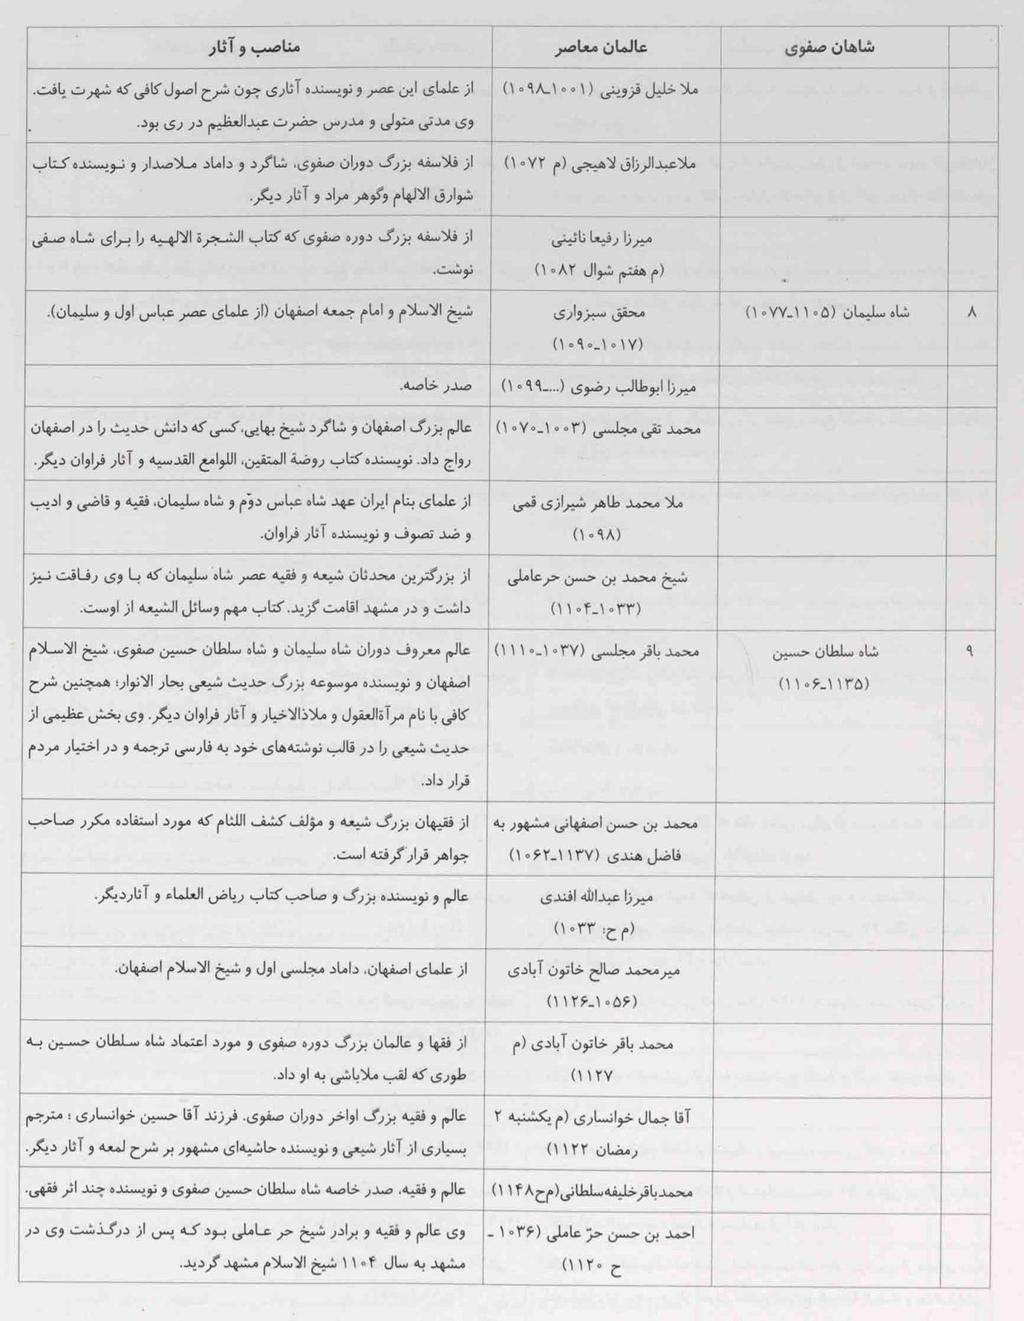 شاهان صفوی	عالمان معاصر	مناصب و آثار
ملا خلیل قزوینی (۱۰۰۱ـ۱۰۹۸)	از علمای این عصر و نویسنده آثاری چون شرح اصول کافی که شهرت یافت.
وی مدتی متولی و مدرس حضرت عبدالعظیم در ری بود.
ملاعبدالرزاق لاهیجی (م ۱۰۷۲)	از فلاسفه بزرگ دوران صفوی، شاگرد و داماد ملاصدار و نویسنده کتاب
شوارق الالهام وگوهر مراد و آثار دیگر.
میرزا رفیعا نائینی	از فلاسفه بزرگ دوره صفوی که کتاب الشجرة الالهیه را برای شاه صفی
(م هفتم شوال ۱۰۸۲)	نوشت.
۸	شاه سلیمان (۱۱۰۵ـ۱۰۷۷)	محقق سبزواری	شیخ الاسلام و امام جمعه اصفهان (از علمای عصر عباس اول و سلیمان).
(۱۰۱۷ـ۱۰۹۰)
میرزا ابوطالب رضوی (...ـ۱۰۹۹)	صدر خاصه.
محمد تقی مجلسی (۱۰۰۳ـ۱۰۷۰)	عالم بزرگ اصفهان و شاگرد شیخ بهایی، کسی که دانش حدیث را در اصفهان
رواج داد. نویسنده کتاب روضة المتقین، اللوامع القدسیه و آثار فراوان دیگر.
ملا محمد طاهر شیرازی قمی	از علمای بنام ایران عهد شاه عباس دوّم و شاه سلیمان، فقیه و قاضی و ادیب
(۱۰۹۸)	و ضد تصوف و نویسنده آثار فراوان.
شیخ محمد بن حسن حرعاملی	از بزرگترین محدثان شیعه و فقیه عصر شاه سلیمان که با وی رفاقت نیز
(۱۰۳۳ـ۱۱۰۴)	داشت و در مشهد اقامت گزید. کتاب مهم وسائل الشیعه از اوست.
۹	شاه سلطان حسین	محمد باقر مجلسی (۱۰۳۷ـ۱۱۱۰)	عالم معروف دوران شاه سلیمان و شاه سلطان حسین صفوی، شیخ الاسلام
(۱۱۳۵ـ۱۱۰۶)	اصفهان و نویسنده موسوعه بزرگ حدیث شیعی بحار الانوار؛ همچنین شرح
کافی با نام مرآةالعقول و ملاذالاخیار و آثار فراوان دیگر. وی بخش عظیمی از
حدیث شیعی را در قالب نوشته‌های خود به فارسی ترجمه و در اختیار مردم
قرار داد.
محمد بن حسن اصفهانی مشهور به	از فقیهان بزرگ شیعه و مؤلف کشف اللثام که مورد استفاده مکرر صاحب
فاضل هندی (۱۱۳۷ـ۱۰۶۲)	جواهر قرار گرفته است.
میرزا عبدالله افندی	عالم و نویسنده بزرگ و صاحب کتاب ریاض العلماء و آثاردیگر.
(م ح: ۱۰۳۳)
میرمحمد صالح خاتون آبادی	از علمای اصفهان، داماد مجلسی اول و شیخ الاسلام اصفهان.
(۱۰۵۶ـ۱۱۲۶)
محمد باقر خاتون آبادی (م	از فقها و عالمان بزرگ دوره صفوی و مورد اعتماد شاه سلطان حسین به
۱۱۲۷)	طوری که لقب ملاباشی به او داد.
آقا جمال خوانساری (م یکشنبه ۲	عالم و فقیه بزرگ اواخر دوران صفوی. فرزند آقا حسین خوانساری ؛ مترجم
رمضان ۱۱۲۲)	بسیاری از آثار شیعی و نویسنده حاشیه‌ای مشهور بر شرح لمعه و آثار دیگر.
محمدباقر خلیفه‌سلطانی(م‌ح۱۱۴۸)	عالم و فقیه، صدر خاصه شاه سلطان حسین صفوی و نویسنده چند اثر فقهی.
احمد بن حسن حرّ عاملی (۱۰۳۶ ـ	وی عالم و فقیه و برادر شیخ حر عاملی بود که پس از درگذشت وی در
ح ۱۱۲۰)	مشهد به سال ۱۱۰۴ شیخ الاسلام مشهد گردید.